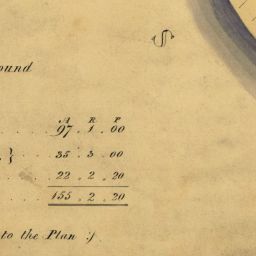 S
ound
A R P
97 . 1 . 00
} 35 . 3 . 00
22 . 2 . 20
155 . 2 . 20
to the Plan :/